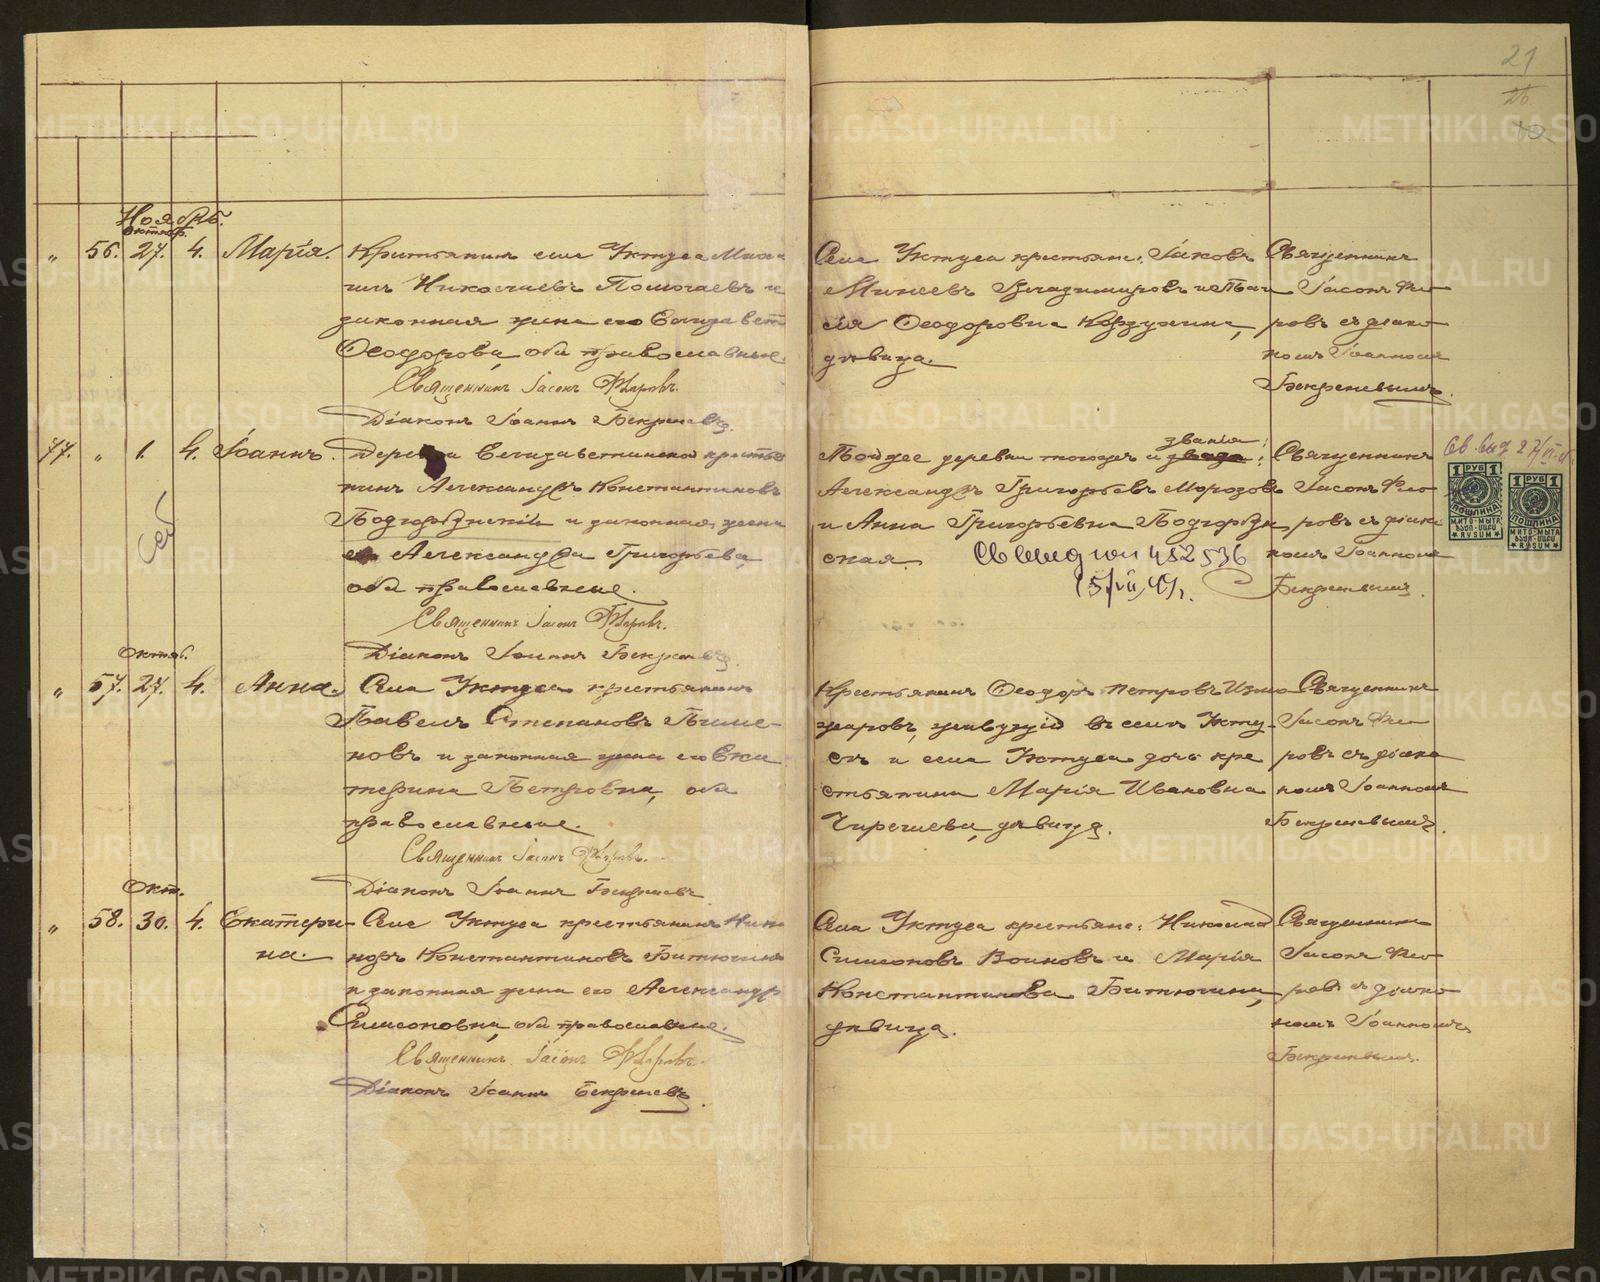 21
Ноябрь.
октябр.
" 56. 27. 4. Марія.
Крестьянинъ села Уктуса Миха
илъ Николаевъ Помогаевъ и
законная жена его Елизавет
Ѳеодорова, оба православные.
Священникъ Іасонъ Флоровъ.
Діаконъ Іоаннъ Бекреневъ.
Села Уктуса крестьяне: Іаковъ
Минеевъ Владимировъ и
Ѳеодоровна Корзунина,
дѣвица.
Священникъ
Іасонъ Фло
ровъ съ діако
номъ Іоанномъ
Бекреневымъ.
77. " 1. 4. Іоаннъ.
Деревни Елизаветинской крестья
нинъ Александръ Константиновъ
и законная жена
его Александра Григорьева,
оба православные.
Священникъ Іасонъ Флоровъ.
Діаконъ Іоаннъ Бекреневъ.
Тойже деревни того же и званія:
Александръ Григорьевъ Морозовъ
и Анна Григорьевна
ская.
452536
15/VII 41 г.
Священникъ
Іасонъ Фло
ровъ съ діако
номъ Іоанномъ
Бекреневымъ.
1 РУБ 1
ПОШЛИНА
МИТО-МЫТА
RVSUM
1 РУБ 1
ПОШЛИНА
МИТО-МЫТА
RVSUM
Октяб.
" 57. 27. 4. Анна.
Села Уктуса крестьянинъ
Павелъ Степановъ Пиме-
новъ и законная жена его Ека
терина Петровна, оба
православные.
Священникъ Іасонъ Флоровъ.
Діаконъ Іоаннъ Бекреневъ
Крестьянинъ Ѳеодоръ Петровъ Измо
жеровъ, живущій въ селѣ Укту-
сѣ и села Уктуса дочь кре
стьянина Марія Ивановна
дѣвица.
Священникъ
Іасонъ Фло
ровъ съ діако
номъ Іоанномъ
Бекреневымъ.
Окт.
" 58. 30. 4. Екатери-
на.
Села Уктуса крестьянинъ Ника
норъ Константиновъ Битюгинъ
и законная жена его Александр
Симеоновна, оба православные.
Священникъ Іасонъ Флоровъ.
Діаконъ Іоаннъ Бекреневъ.
Села Уктуса крестьяне: Николай
Симеоновъ Воиновъ и Марія
Константинова Битюгина,
дѣвица.
Священникъ
Іасонъ Фло
ровъ съ діако
номъ Іоанномъ
Бекреневымъ.
METRIKI.GASO-URAL.RU